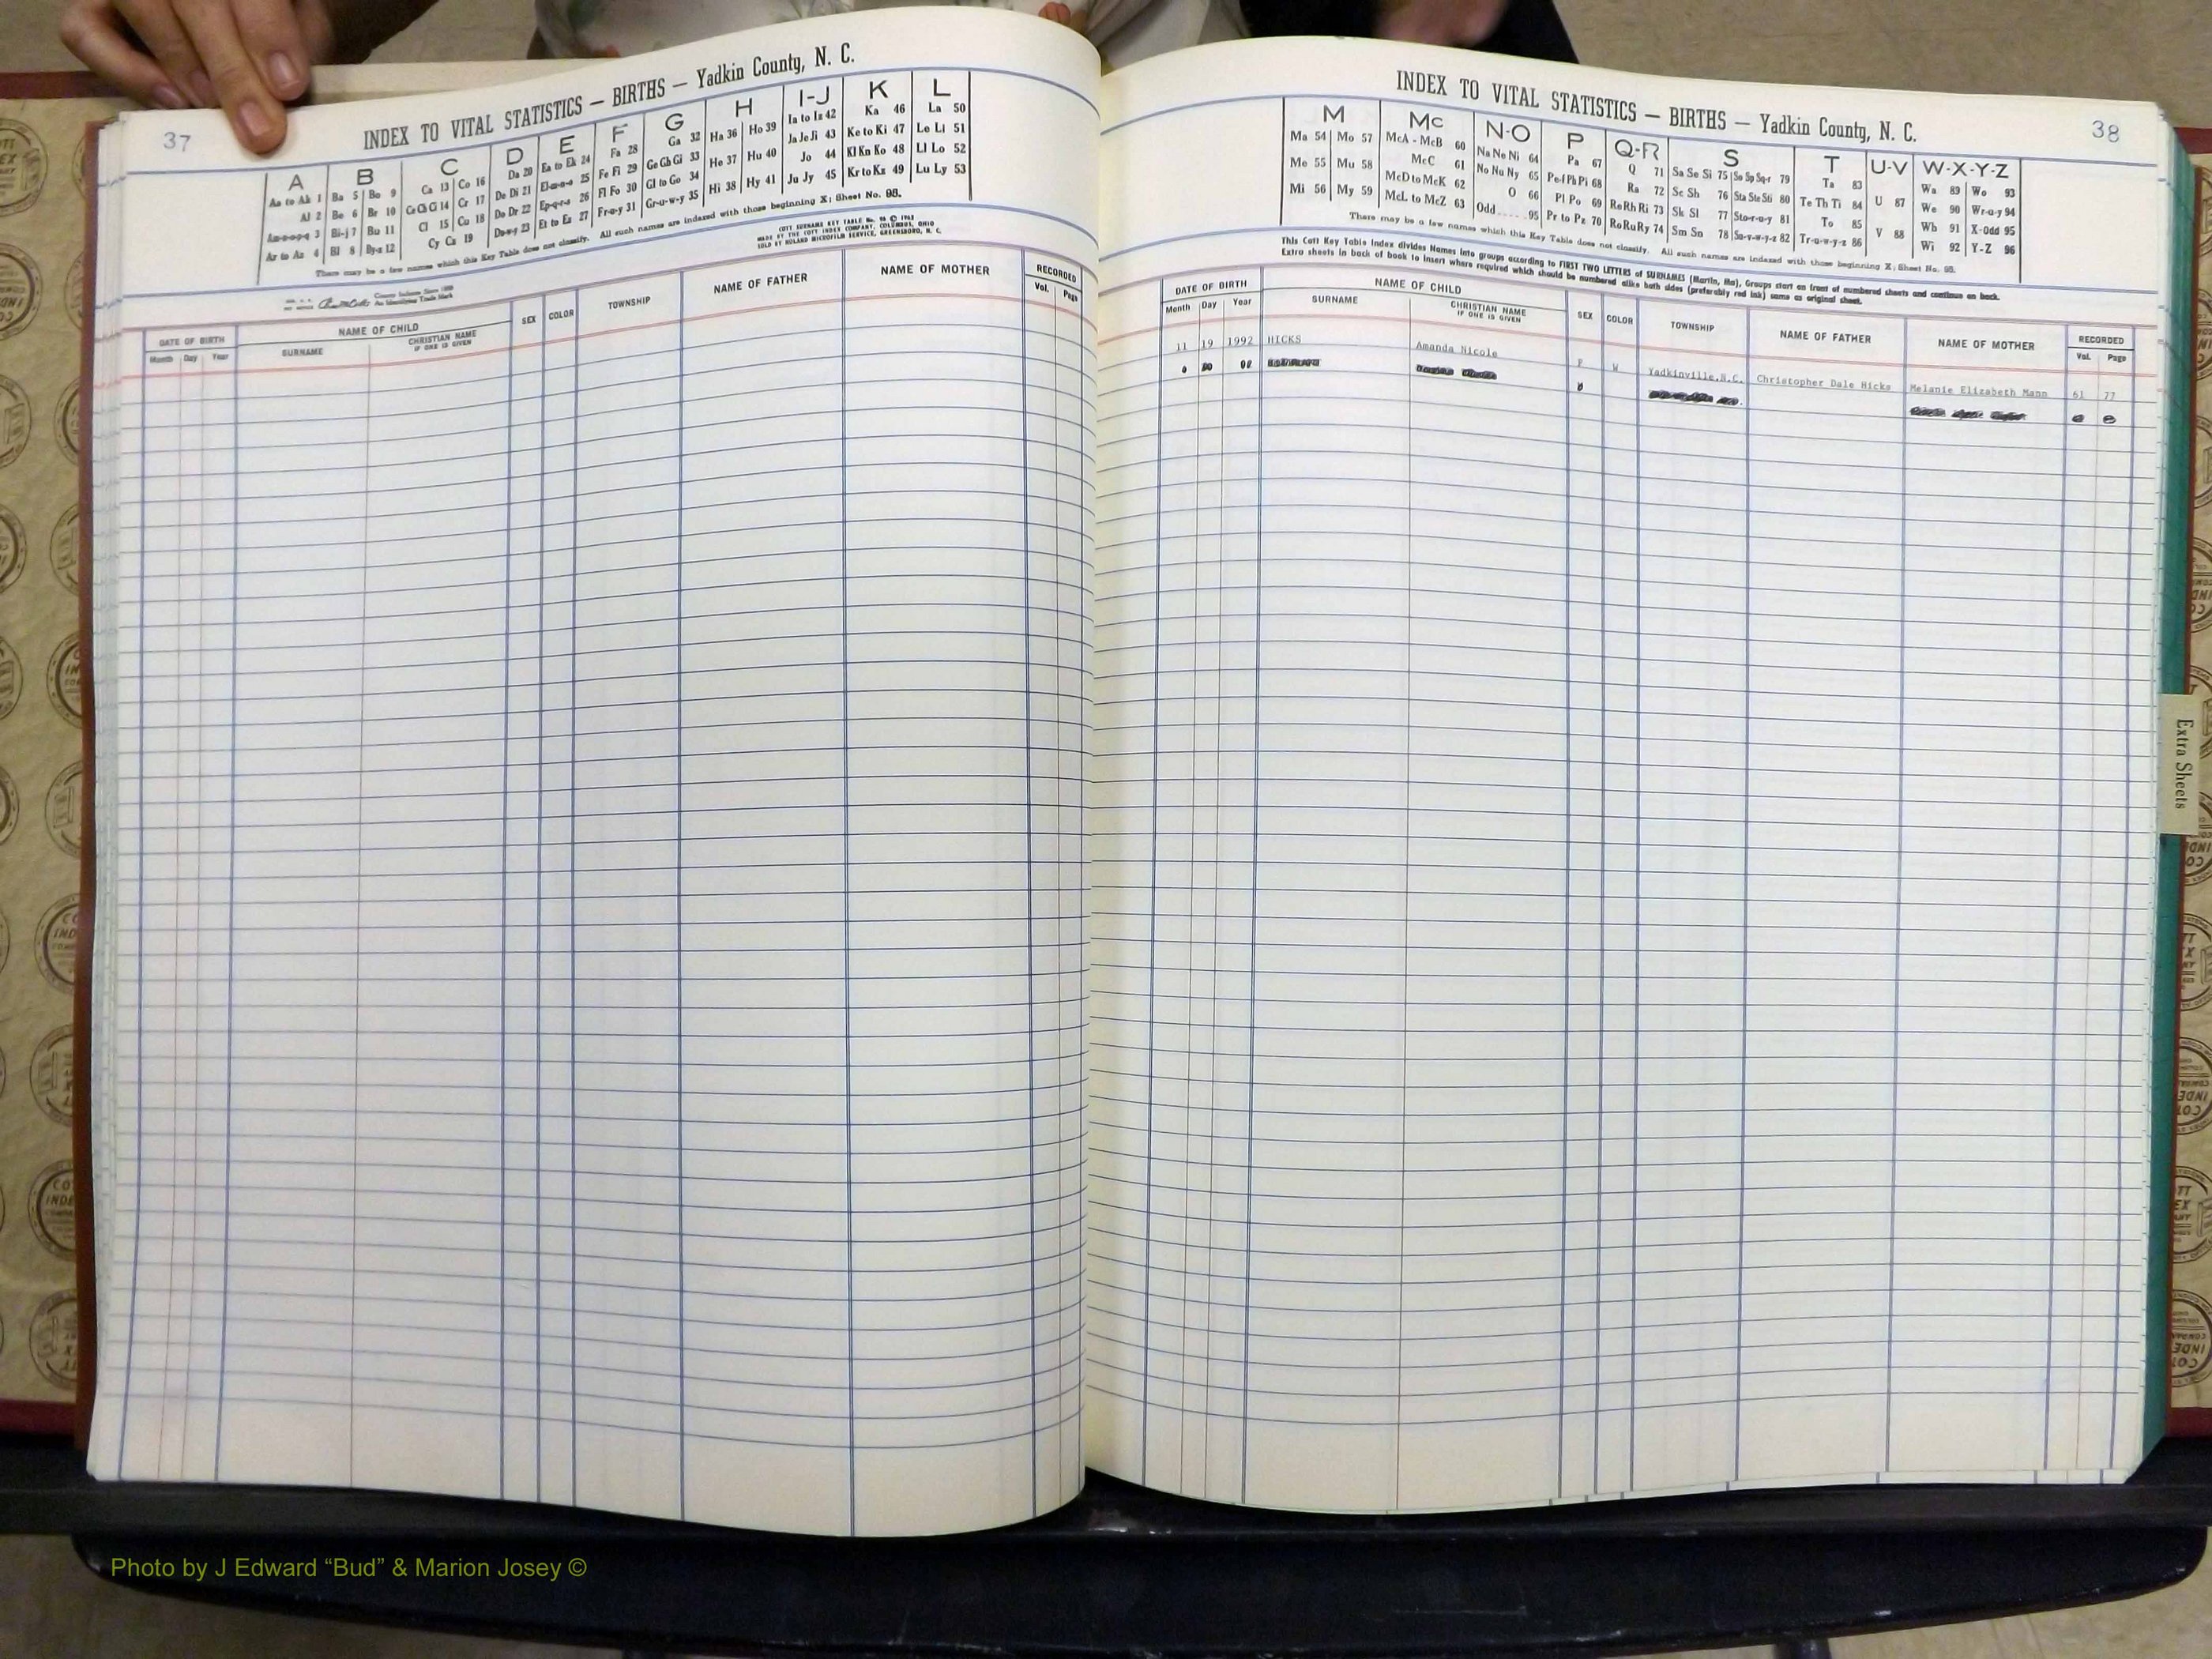 37
INDEX TO VITAL STATISTICS — BIRTHS — Yadkin County, N. C.
A B C D E F G H I-J K L
Aa to Ak 1 Ba 5 Bo 9 Ca 13 Co 16 Da 20 Ea to Ek 24 Fa 28 Ga 32 Ha 36 Ho 39 Ia to Iz 42 Ka 46 La 50
Al 2 Be 6 Br 10 Ce Ch Ci 14 Cr 17 De Di 21 El-m-n-o 25 Fe Fi 29 Ge Gh Gi 33 He 37 Hu 40 Ja Je Ji 43 Ke to Ki 47 Le Li 51
Am-n-o-p-q 3 Bi-j 7 Bu 11 Cl 15 Cu 18 Do Dr 22 Ep-q-r-s 26 Fl Fo 30 Gl to Go 34 Hi 38 Hy 41 Jo 44 Kl Kn Ko 48 Ll Lo 52
Ar to Az 4 Bl 8 By-z 12 Cy Cz 19 Du-w-y 23 Et to Ez 27 Fr-u-y 31 Gr-u-w-y 35 Ju Jy 45 Kr to Kz 49 Lu Ly 53
There may be a few names which this Key Table does not classify. All such names are indexed with those beginning X; Sheet No. 95.
COTT SURNAME KEY TABLE No. 96 ©
MADE BY THE COTT INDEX COMPANY, COLUMBUS, OHIO
SOLD BY NOLAND MICROFILM SERVICE, GREENSBORO, N. C.
County Indexes Since 1888
An Identifying Trade Mark
DATE OF BIRTH NAME OF CHILD SEX COLOR TOWNSHIP NAME OF FATHER NAME OF MOTHER RECORDED
Month Day Year SURNAME CHRISTIAN NAME IF ONE IS GIVEN Vol. Page
38
INDEX TO VITAL STATISTICS — BIRTHS — Yadkin County, N. C.
M Mc N-O P Q-R S T U-V W-X-Y-Z
Ma 54 Mo 57 McA - McB 60 Na Ne Ni 64 Pa 67 Q 71 Sa Se Si 75 So Sp Sq-r 79 Ta 83 U 87 Wa 89 Wo 93
Me 55 Mu 58 McC 61 No Nu Ny 65 Pe-f Ph Pi 68 Ra 72 Sc Sh 76 Sta Ste Sti 80 Te Th Ti 84 V 88 We 90 Wr-u-y 94
Mi 56 My 59 McD to McK 62 O 66 Pl Po 69 Re Rh Ri 73 Sk Sl 77 Sto-r-u-y 81 To 85 Wh 91 X-Odd 95
McL to McZ 63 Odd 95 Pr to Pz 70 Ro Ru Ry 74 Sm Sn 78 Su-v-w-y-z 82 Tr-u-w-y-z 86 Wi 92 Y-Z 96
There may be a few names which this Key Table does not classify. All such names are indexed with those beginning X; Sheet No. 95.
This Cott Key Table Index divides Names into groups according to FIRST TWO LETTERS of SURNAMES (Martin, Ma), Groups start on front of numbered sheets and continue on back.
Extra sheets in back of book to insert where required which should be numbered alike both sides (preferably red ink) same as original sheet.
DATE OF BIRTH NAME OF CHILD SEX COLOR TOWNSHIP NAME OF FATHER NAME OF MOTHER RECORDED
Month Day Year SURNAME CHRISTIAN NAME IF ONE IS GIVEN Vol. Page
11 19 1992 HICKS Amanda Nicole F W Yadkinville,N.C. Christopher Dale Hicks Melanie Elizabeth Mann 61 77
Extra Sheets
Photo by J Edward “Bud” & Marion Josey ©